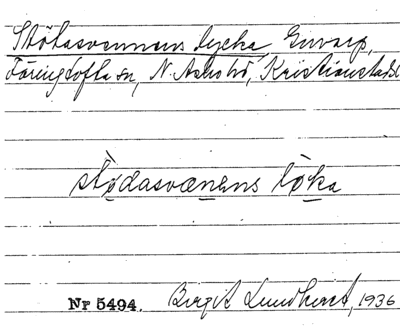 Stötasvennens lycka, Envarp,
Färingtofta sn, N. Åsbohd, Kristianstads l.
stödasvænens löka
Nr 5494. Birgit Lundkvist, 1936